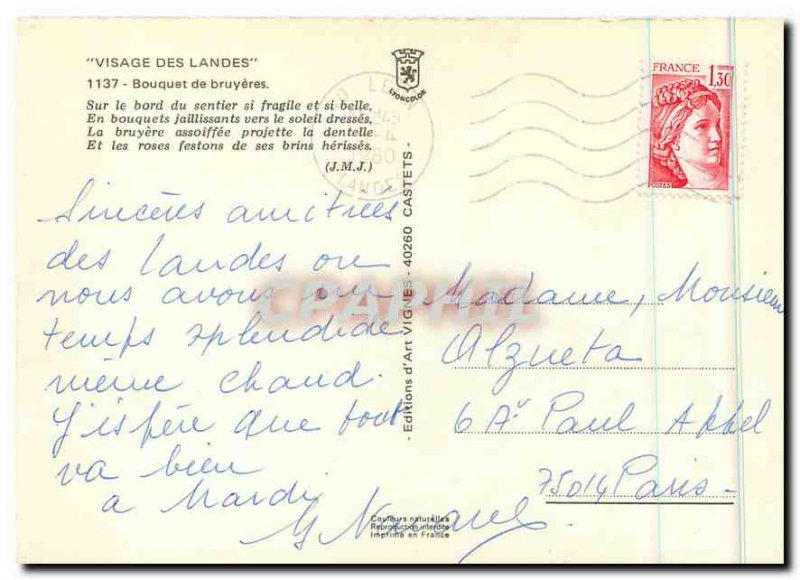 "VISAGE DES LANDES"
1137 - Bouquet de bruyères.
Sur le bord du sentier si fragile et si belle,
En bouquets jaillissants vers le soleil dressés,
La bruyère assoiffée projette la dentelle
Et les roses festons de ses brins hérissés.
(J.M.J.)
LYONCOLOR
FRANCE
1,30
POSTES
LANDES
- Editions d'Art VIGNES - 40260 CASTETS -
Sincères amitiées
des landes ou
nous avons un
temps splendide
même chaud.
J'espère que tout
va bien
a Mardi
CPAPHIL
Madame, Monsieur
Alzueta
6 Av Paul Appel
75014 Paris -
Couleurs naturelles
Reproduction interdite
Imprimé en France